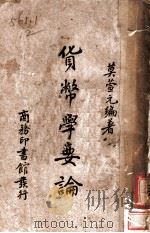 561.1
2
莫萱元編著
貨幣學要論
商務印書館發行